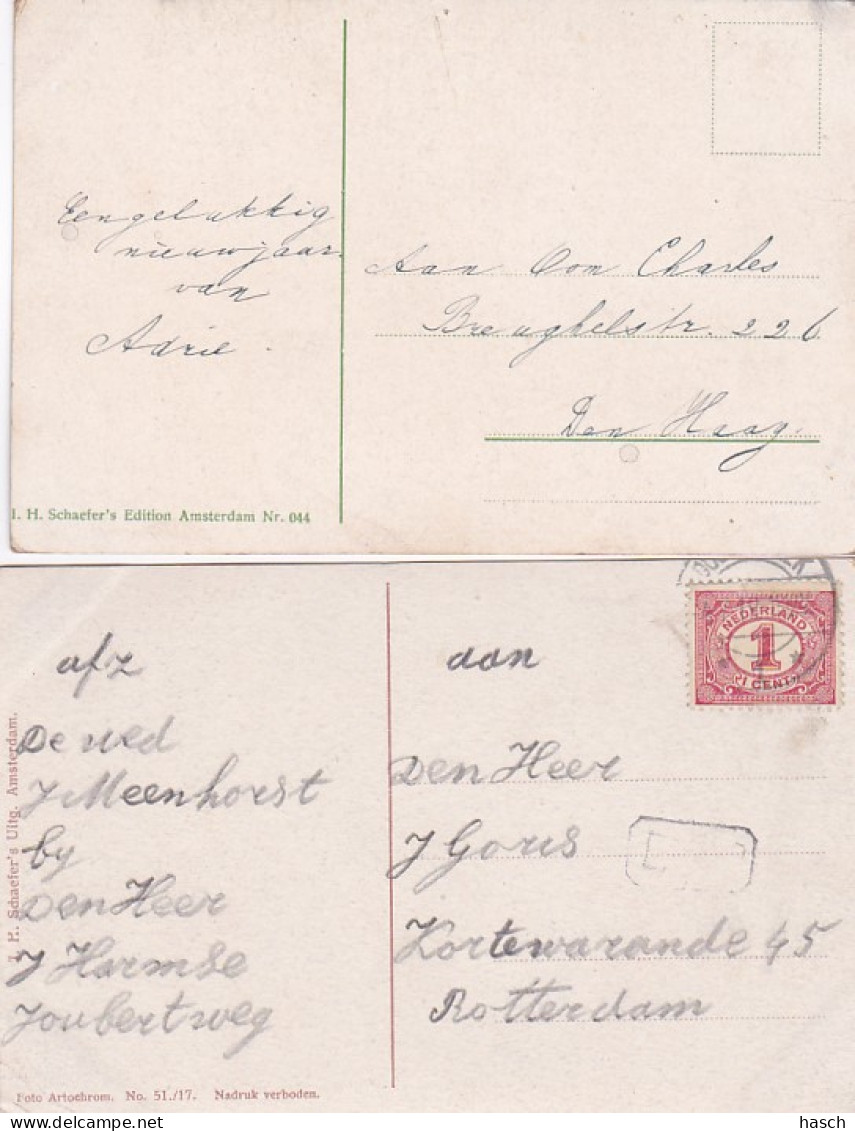 Eengelukkig
nieuwjaar
van
Adrie.
Aan Oom Charles
Breughelstr. 226
Den Haag.
I. H. Schaefer's Edition Amsterdam Nr. 044
afz
De wed
J Meenhorst
by
Den Heer
J Harmse
Joubertweg
aan
NEDERLAND
1
1 CENT
Den Heer
J Goris
Kortewarande 45
Rotterdam
Schaefer's Uitg. Amsterdam.
Foto Artochrom. No. 51./17. Nadruk verboden.
hasch